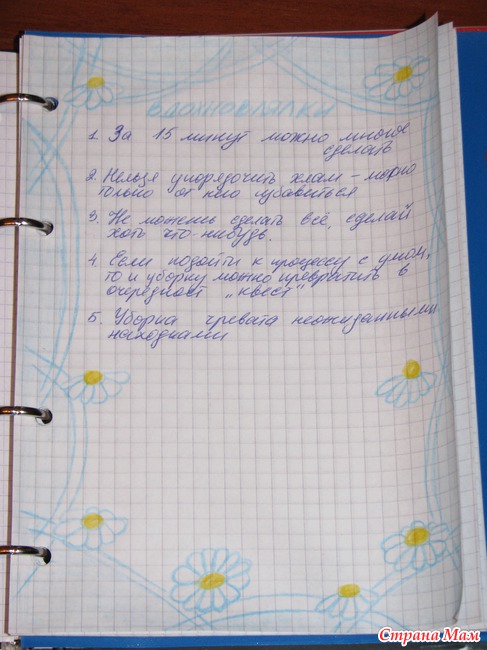 вдохновлялки
1. За 15 минут можно многое
сделать
2. Нельзя упорядочить хлам – можно
только от него избавиться
3. Не можешь сделать всё, сделай
хоть что-нибудь.
4. Если подойти к процессу с умом,
то и уборку можно превратить в
очередной „квест"
5. Уборка чревата неожиданными
находками
Страна Мам